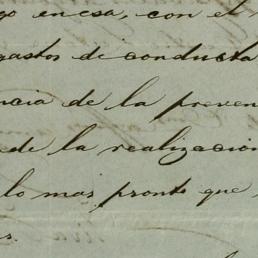 go en esa, con el
gastos de conducta
ncia de la preven
de la realizacion
lo mas pronto que